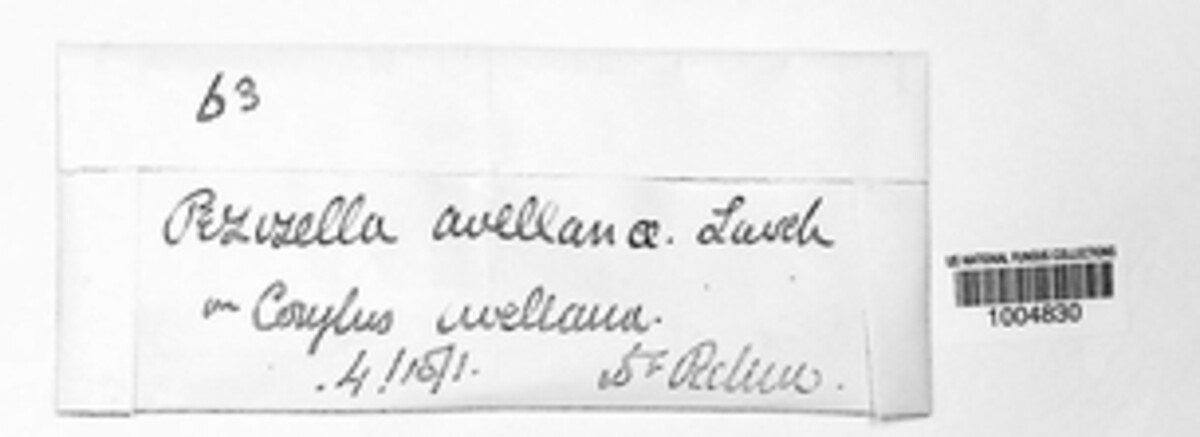 63
Pezizella avellanæ. Lasch
on Corylus avellana.
Dr Rehm.
US NATIONAL FUNGUS COLLECTIONS
1004830